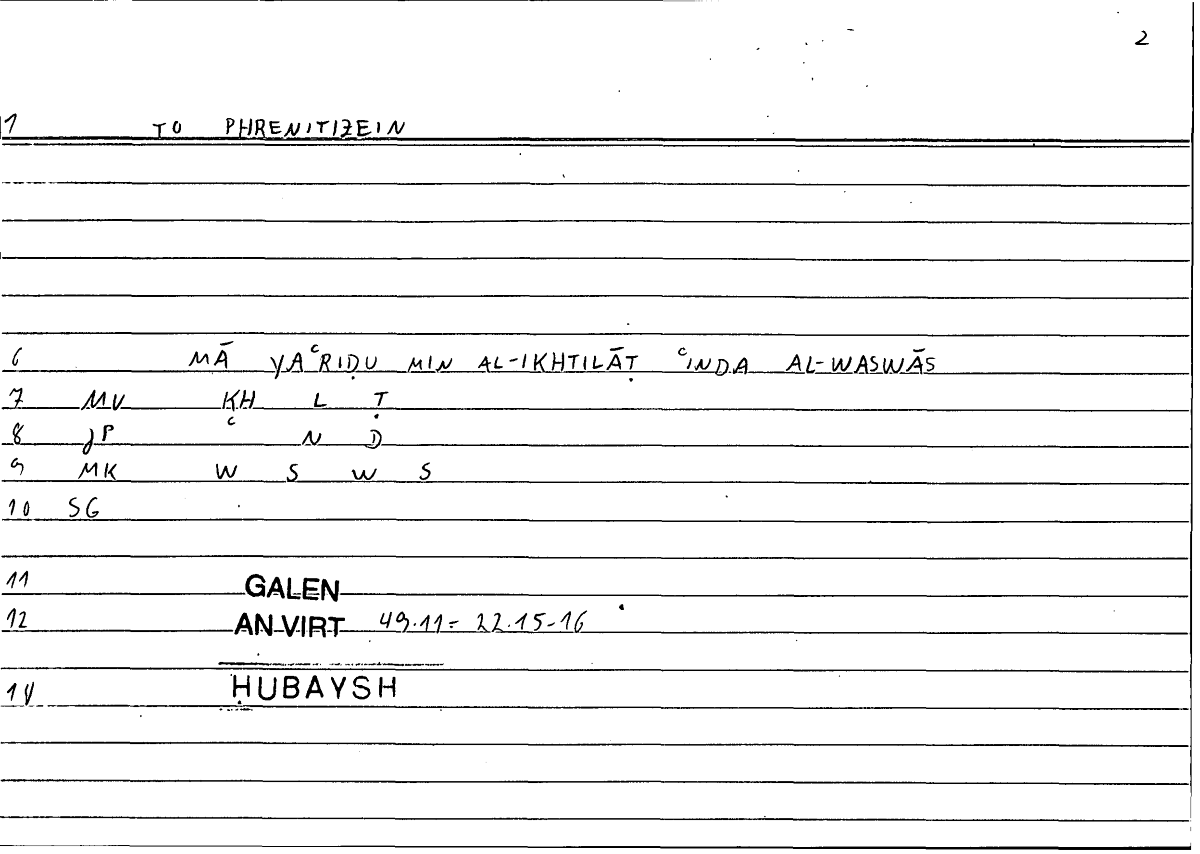 2
1 TO PHRENITIZEIN
6 MĀ YAʿRIḌU MIN AL-IKHTILĀṬ ʿINDA AL-WASWĀS
7 MV KH L Ṭ
8 JP ʿ N D
9 MK W S W S
10 SG
11 GALEN
12 AN.VIRT 49.11 = 22.15-16
14 ḤUBAYSH